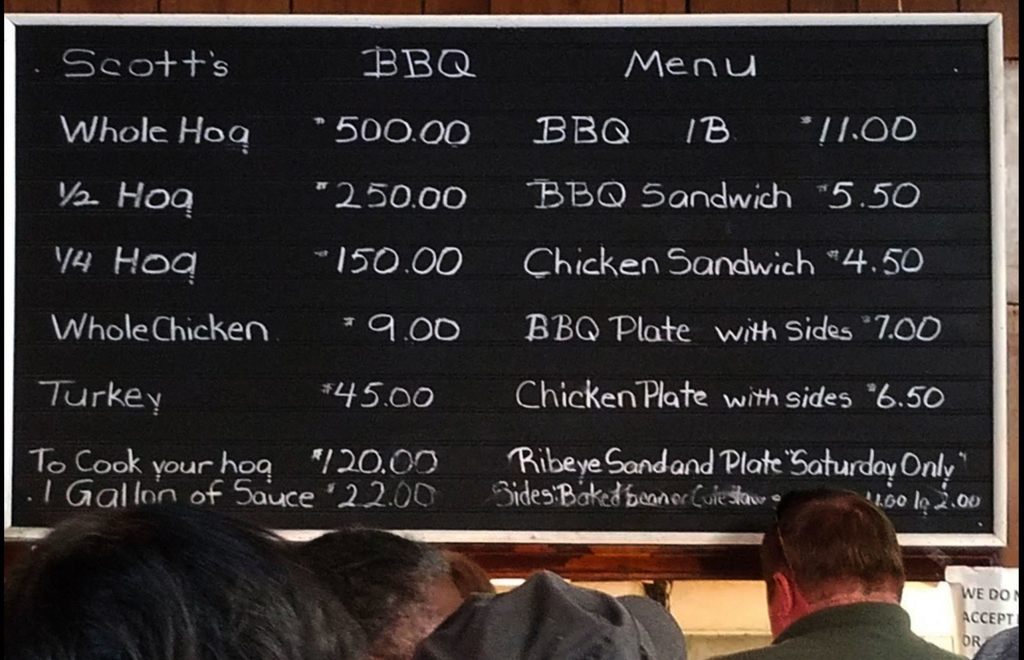 Scott's BBQ Menu
Whole Hog $500.00 BBQ 1B $11.00
1/2 Hog $250.00 BBQ Sandwich $5.50
1/4 Hog $150.00 Chicken Sandwich $4.50
Whole Chicken $9.00 BBQ Plate with Sides $7.00
Turkey $45.00 Chicken Plate with sides $6.50
To Cook your hog $120.00 Ribeye Sand and Plate "Saturday Only"
1 Gallon of Sauce $22.00 Sides: Baked beans or Coleslaw 2.00
WE DO
ACCEPT
OR